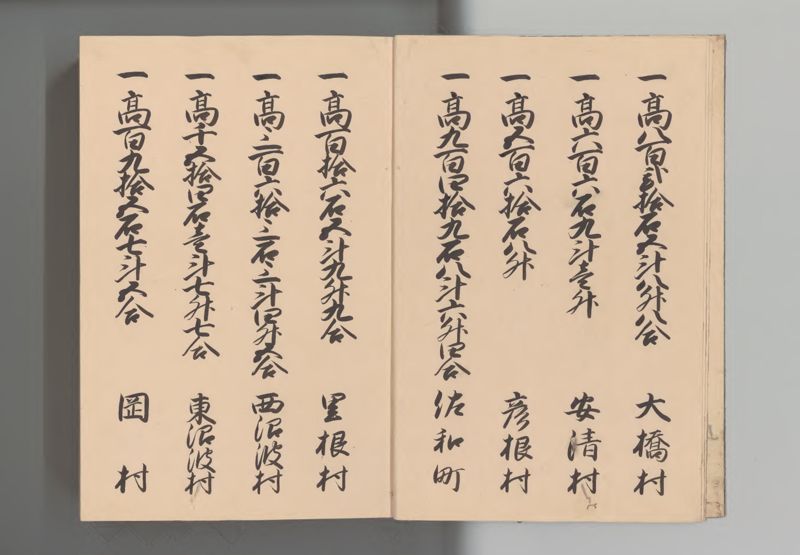 一高八百弐拾石五斗八升八合 大橋村
一高六百六石九斗壱升 安清村
一高五百六拾石八升 彦根村
一高九百四拾九石八斗六升四合 佐和町
一高百拾六石五斗九升九合 里根村
一高三百六拾三石三斗四升五合 西沼波村
一高千五拾四石壱斗七升七合 東沼波村
一高百九拾五石七斗五合 岡村